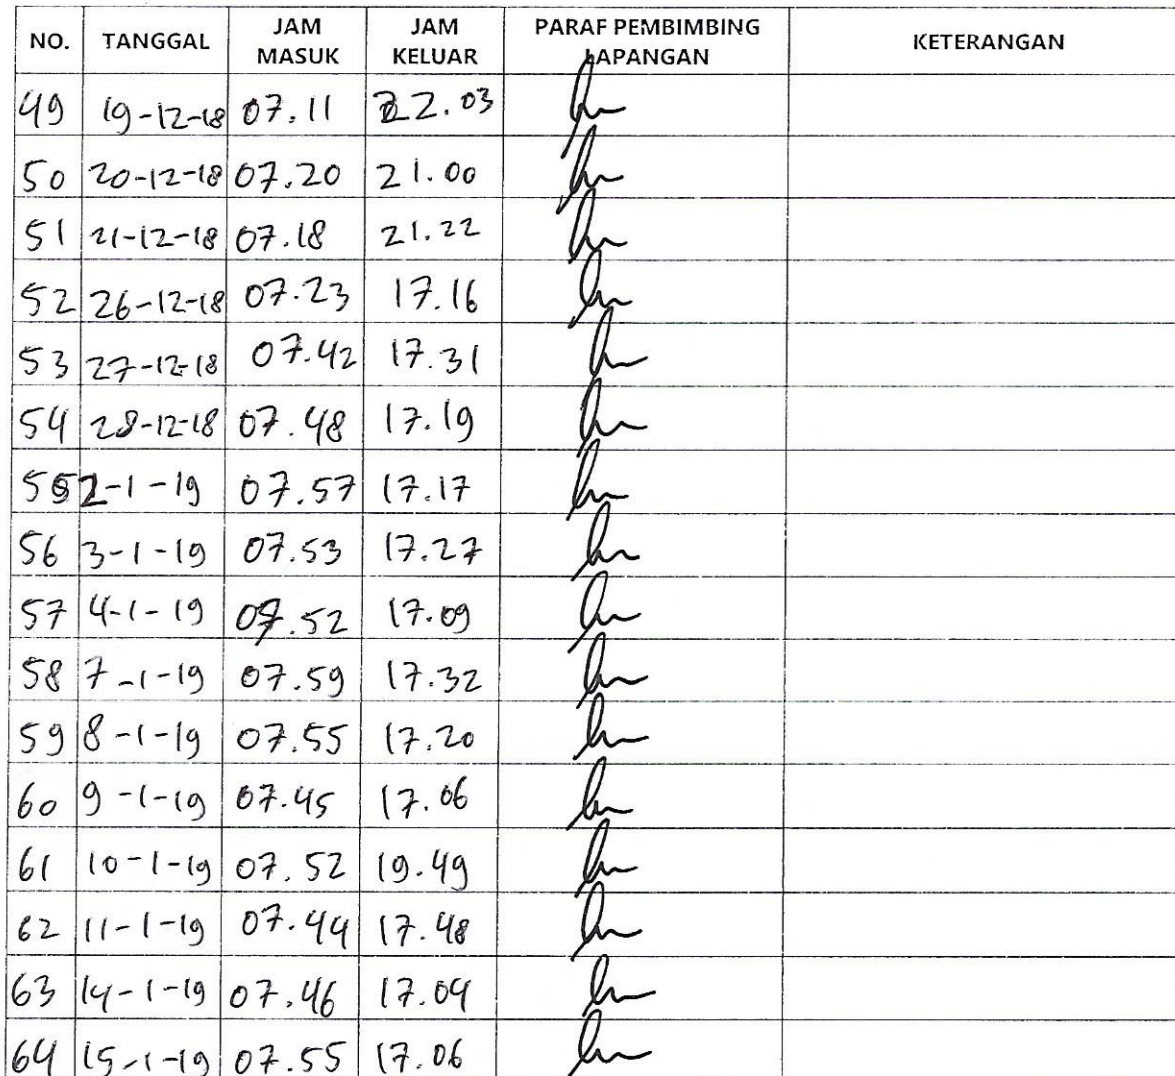 NO. TANGGAL JAM MASUK JAM KELUAR PARAF PEMBIMBING LAPANGAN KETERANGAN
49 19-12-18 07.11 22.03
50 20-12-18 07.20 21.00
51 21-12-18 07.18 21.22
52 26-12-18 07.23 17.16
53 27-12-18 07.42 17.31
54 28-12-18 07.48 17.19
55 2-1-19 07.57 17.17
56 3-1-19 07.53 17.27
57 4-1-19 07.52 17.09
58 7-1-19 07.59 17.32
59 8-1-19 07.55 17.20
60 9-1-19 07.45 17.06
61 10-1-19 07.52 19.49
62 11-1-19 07.44 17.48
63 14-1-19 07.46 17.04
64 15-1-19 07.55 17.06